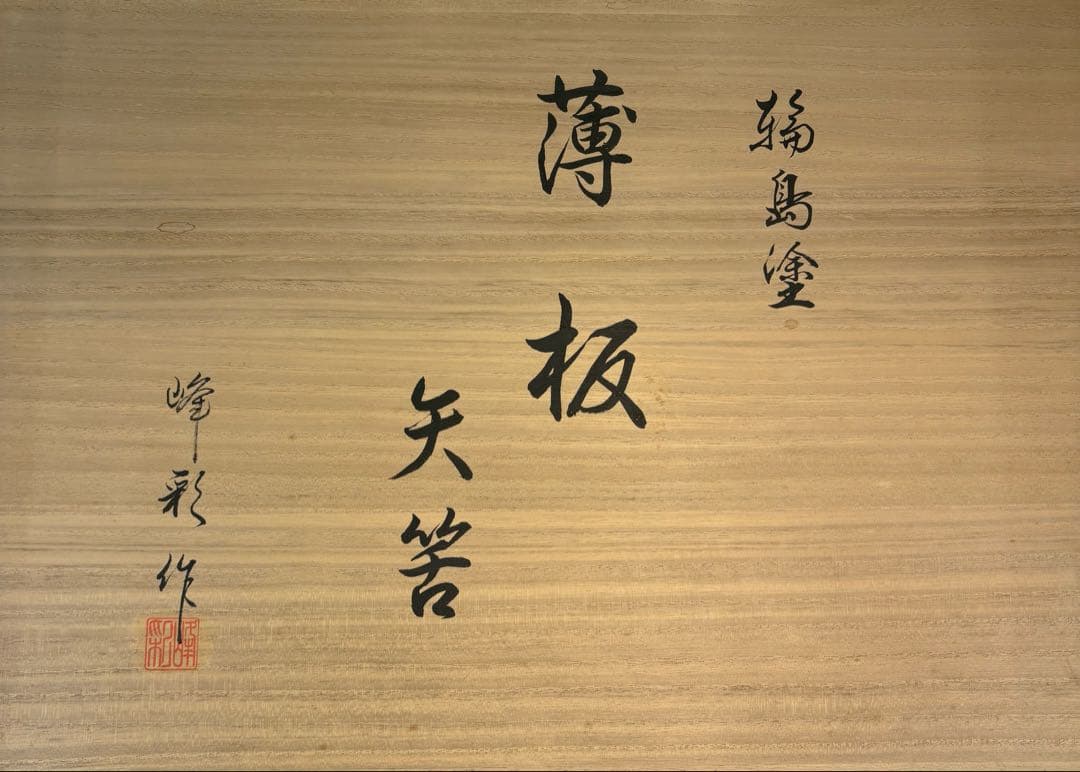 輪島塗
薄板
矢筈
峰彩作
峰彩